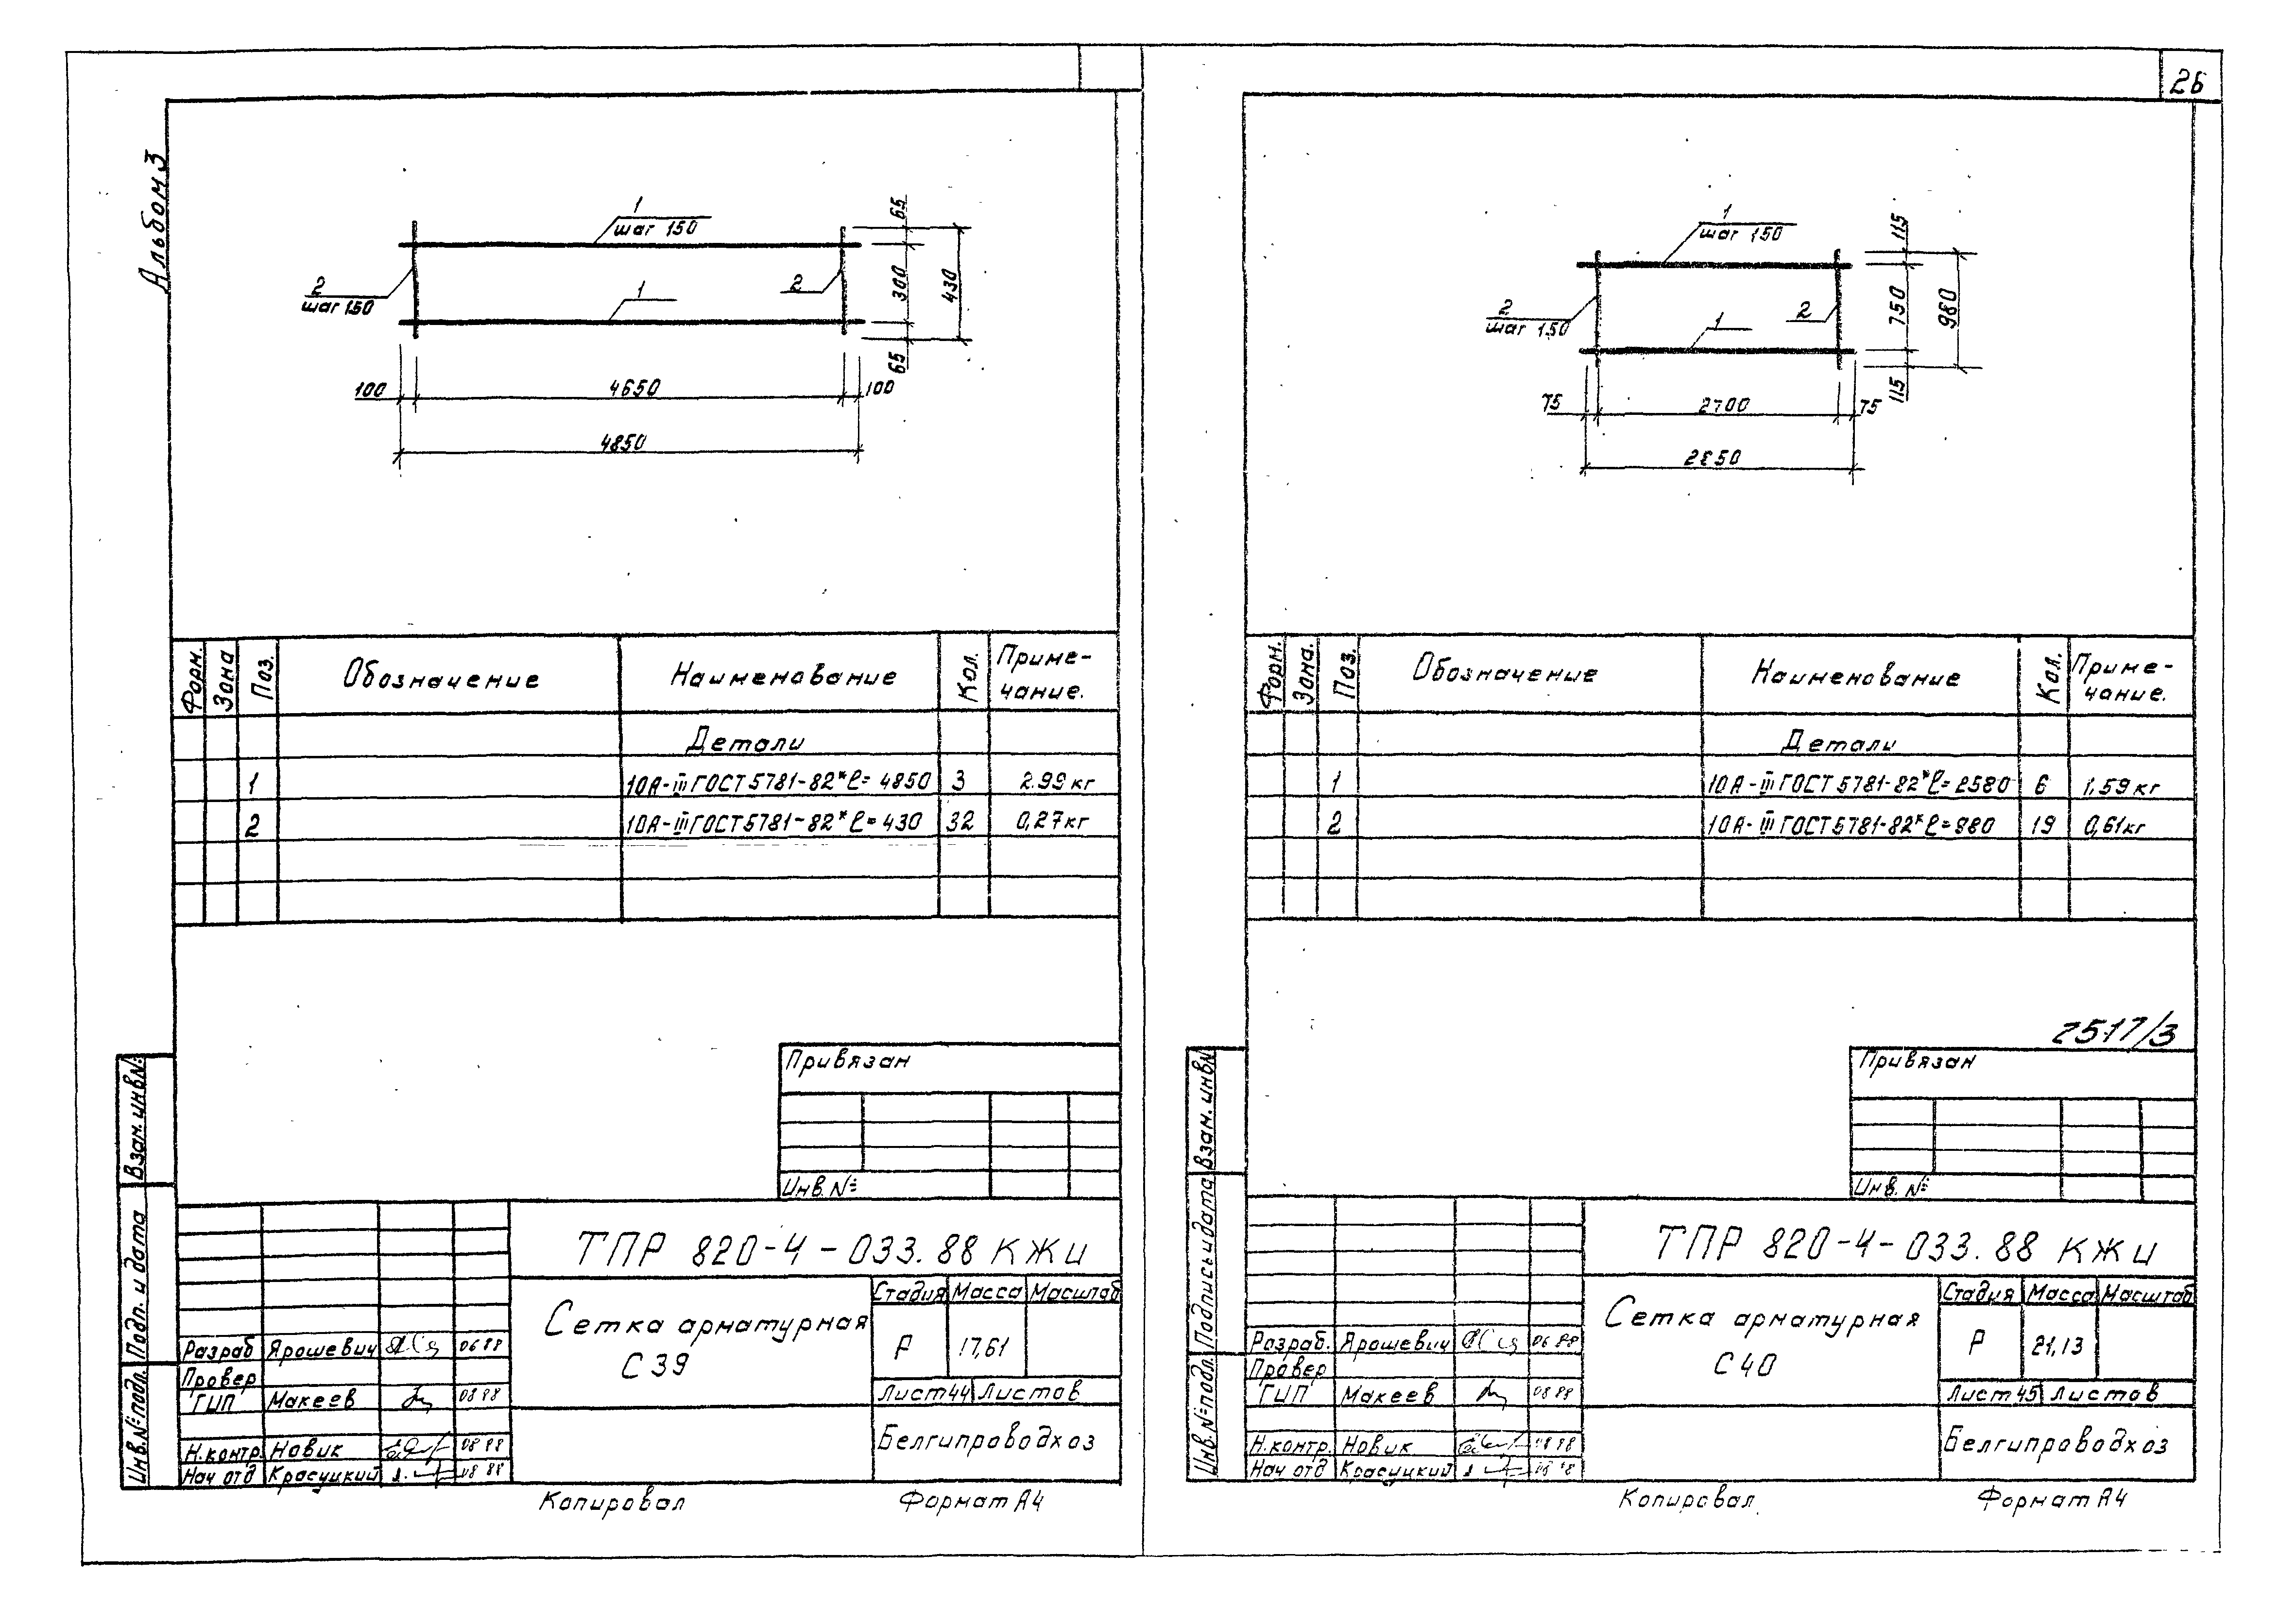 26
Альбом 3
1
шаг 150
2
шаг 150
1
2
65
300
430
65
100
4650
100
4850
Форм.
Зона
Поз.
Обозначение
Наименование
Кол.
Приме-
чание.
Детали
1 10А-III ГОСТ 5781-82* ℓ= 4850 3 2.99 кг
2 10А-III ГОСТ 5781-82* ℓ= 430 32 0,27 кг
Привязан
Инв. №
Взам. инв №
Подп. и дата
Инв. № подл.
ТПР 820-4-033.88 КЖИ
Сетка арматурная
С 39
Стадия Масса Масштаб
Р 17,61
Лист 44 Листов
Белгипроводхоз
Разраб Ярошевич 06 88
Провер
ГИП Макеев 08 88
Н.контр. Новик 08 88
Нач отд Красуцкий 08 88
Копировал
Формат А4
1
шаг 150
2
шаг 150
1
2
115
750
980
115
75
2700
75
2850
Форм.
Зона.
Поз.
Обозначение
Наименование
Кол.
Приме-
чание.
Детали
1 10А-III ГОСТ 5781-82* ℓ= 2580 6 1,59 кг
2 10А-III ГОСТ 5781-82* ℓ= 980 19 0,61 кг
2517/3
Привязан
Инв. №
Взам. инв №
Подпись и дата
Инв. № подл.
ТПР 820-4-033.88 КЖИ
Сетка арматурная
С 40
Стадия Масса Масштаб
Р 21,13
Лист 45 Листов
Белгипроводхоз
Разраб. Ярошевич 06 88
Провер
ГИП Макеев 08 88
Н.контр. Новик 08 88
Нач отд Красуцкий
Копировал
Формат А4